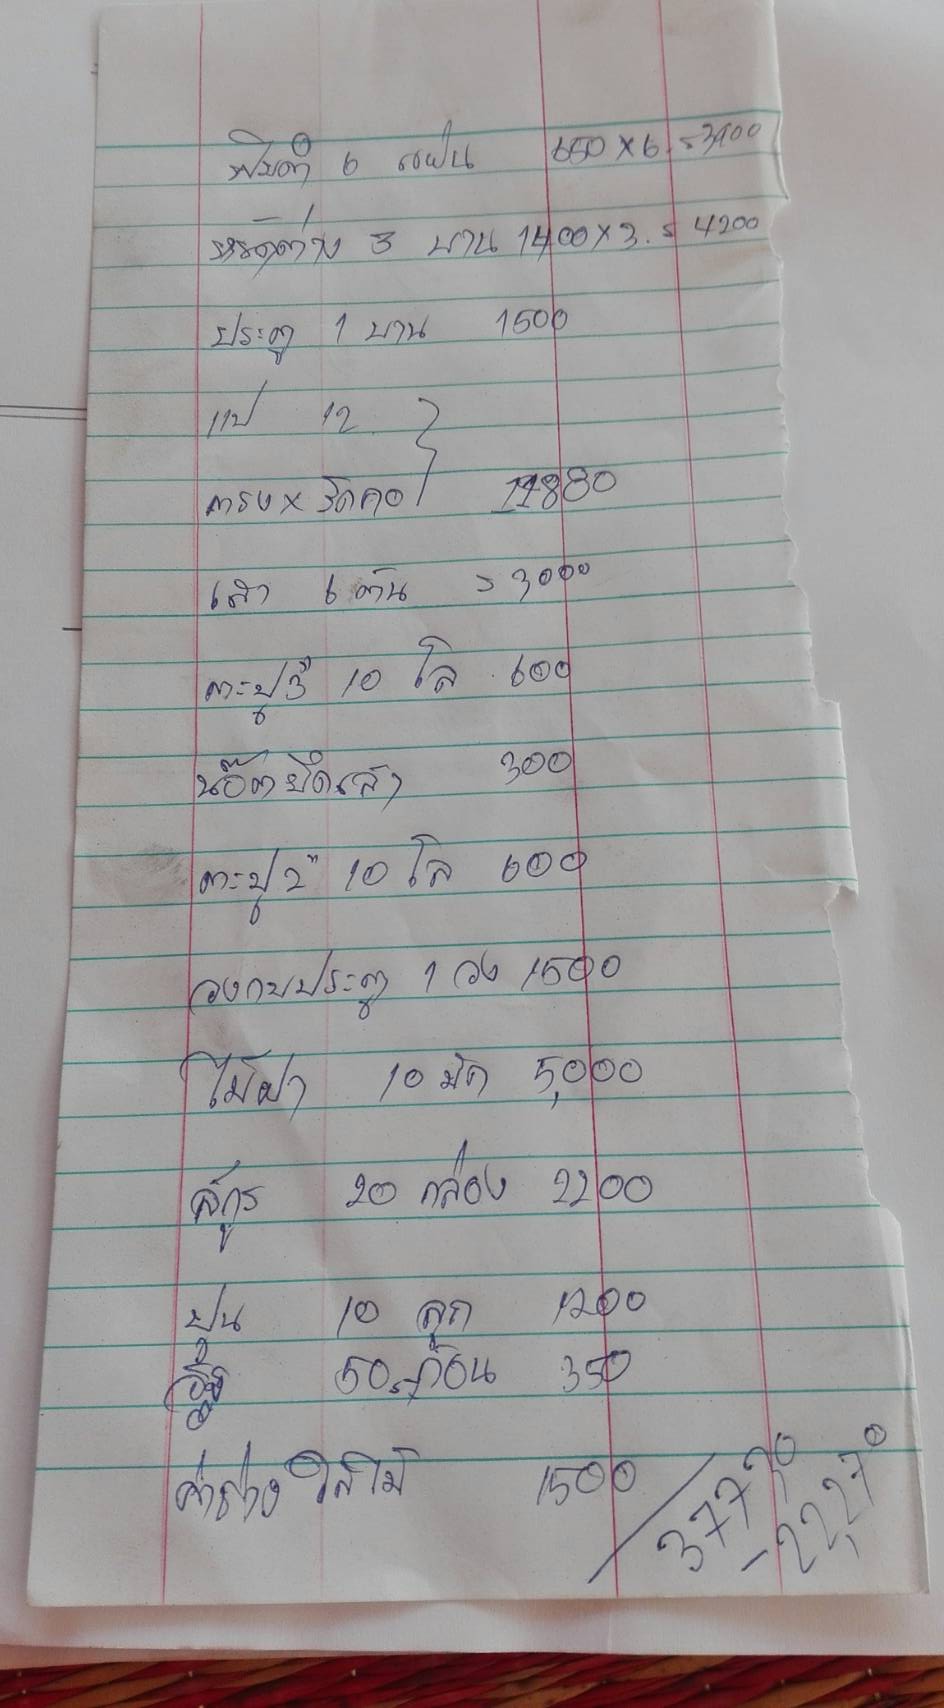 6 แผ่น 650 × 6. = 3900
หน้าต่าง 3 บาน 1400 × 3. = 4200
ประตู 1 บาน 1500
แป 12
ตรง × รัดคอ 11880
เสา 6 ต้น = 3000
ตะปู 3" 10 โล 600
น๊อตยึดเสา 300
ตะปู 2" 10 โล 600
วงกบประตู 1 วง 1500
ไม้ฝา 10 มัด 5,000
สกูร 20 กล่อง 2200
ปูน 10 ลูก 1200
อิฐ 50 ก้อน 350
ค่าช่าง ใสไม้ 1500
37730